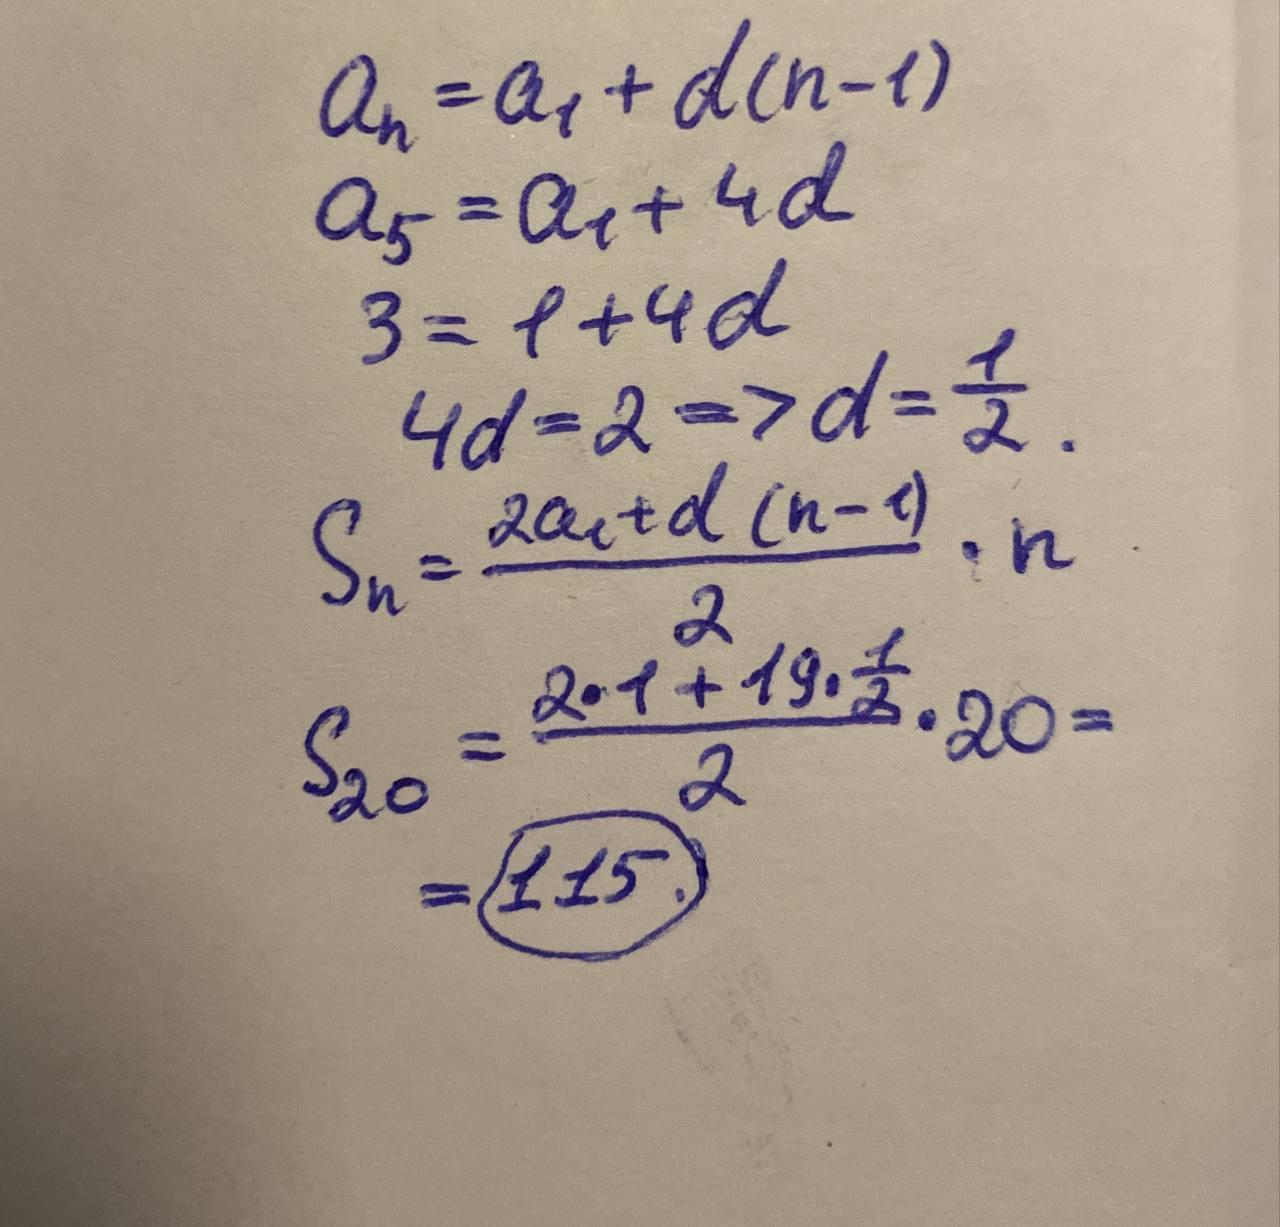 aₙ = a₁ + d(n-1)
a₅ = a₁ + 4d
3 = 1 + 4d
4d = 2 => d = 1/2.
Sₙ = (2a₁ + d(n-1))/2 · n
S₂₀ = (2·1 + 19·1/2)/2 · 20 =
= 115.